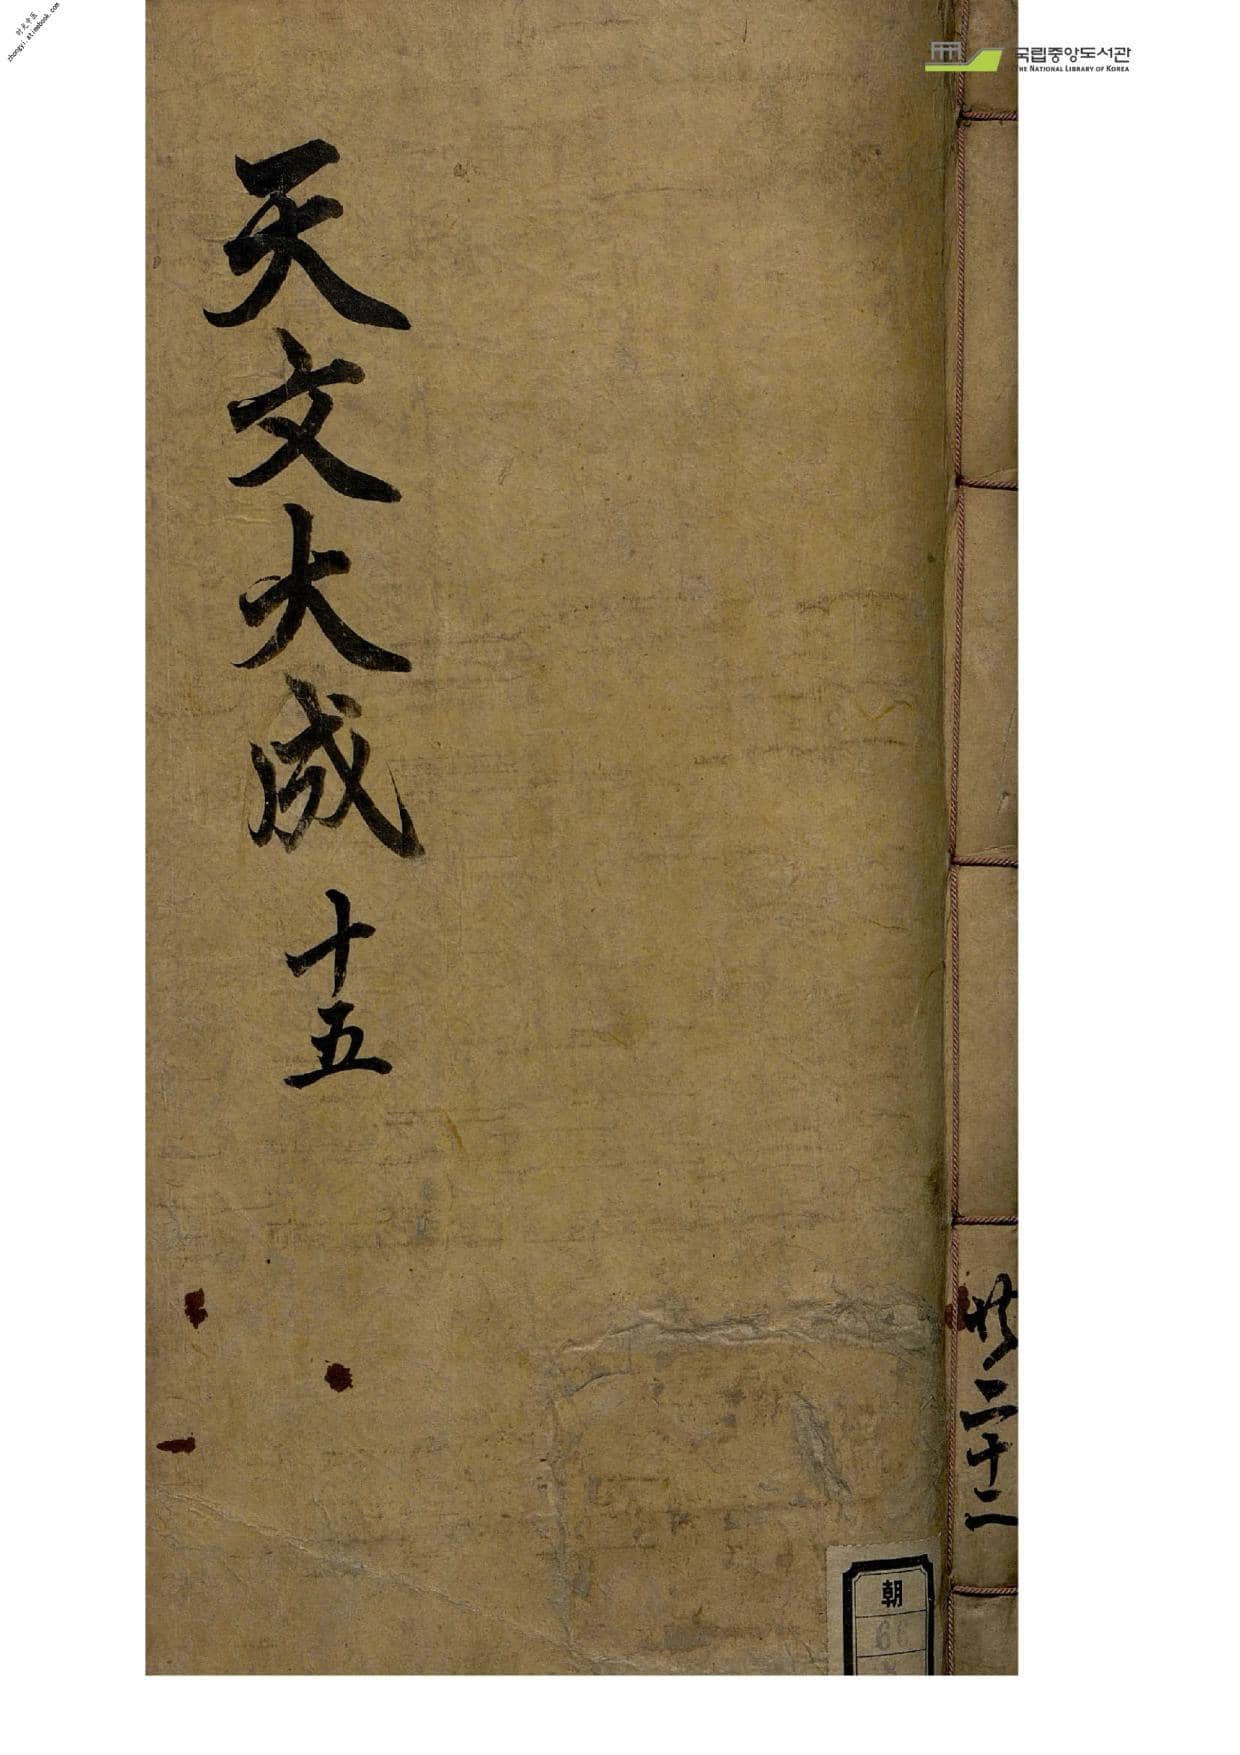 时光中医
zhongyi.atimebook.com
국립중앙도서관
THE NATIONAL LIBRARY OF KOREA
天文大成 十五
共二十二
朝
66